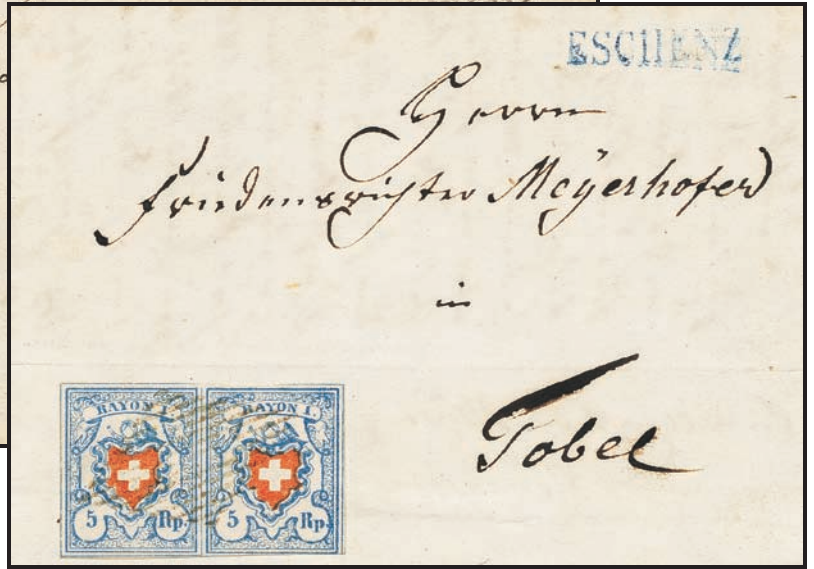 ESCHENZ
Herrn
Friedensrichter Meÿerhofer
in
Tobel
RAYON I. RAYON I.
5 Rp. 5 Rp.